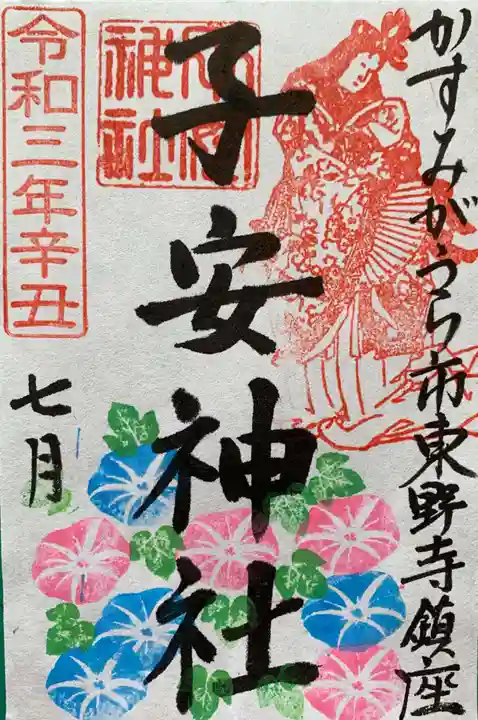 かすみがうら市東野寺鎮座
子安神社
令和三年辛丑
七月